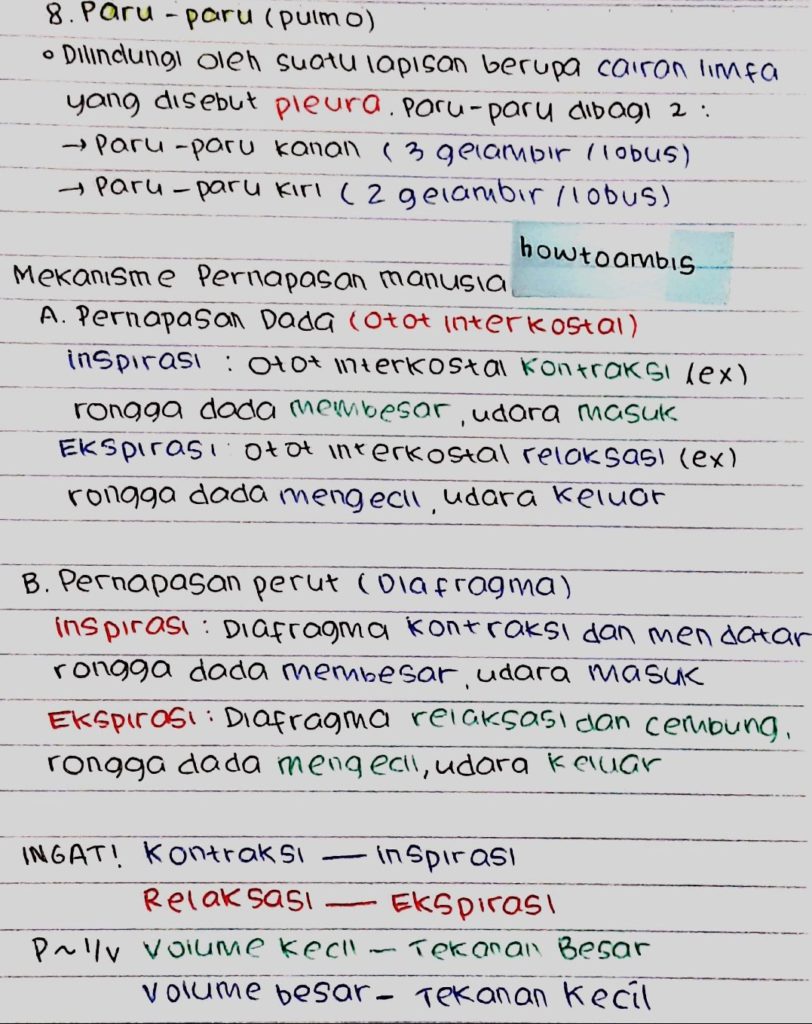 8. Paru-paru (pulmo)
• Dilindungi oleh suatu lapisan berupa cairan limfa
yang disebut pleura. Paru-paru dibagi 2 :
→ Paru-paru kanan (3 gelambir/lobus)
→ Paru-paru kiri (2 gelambir/lobus)
howtoambis
Mekanisme Pernapasan manusia
A. Pernapasan Dada (Otot interkostal)
inspirasi : Otot interkostal kontraksi (ex)
rongga dada membesar, udara masuk
Ekspirasi: Otot interkostal relaksasi (ex)
rongga dada mengecil, udara keluar
B. Pernapasan perut (Diafragma)
inspirasi : Diafragma kontraksi dan mendatar
rongga dada membesar, udara masuk
Ekspirasi : Diafragma relaksasi dan cembung.
rongga dada mengecil, udara keluar
INGAT! Kontraksi — inspirasi
Relaksasi — Ekspirasi
P~1/v Volume kecil - Tekanan Besar
Volume besar - Tekanan kecil